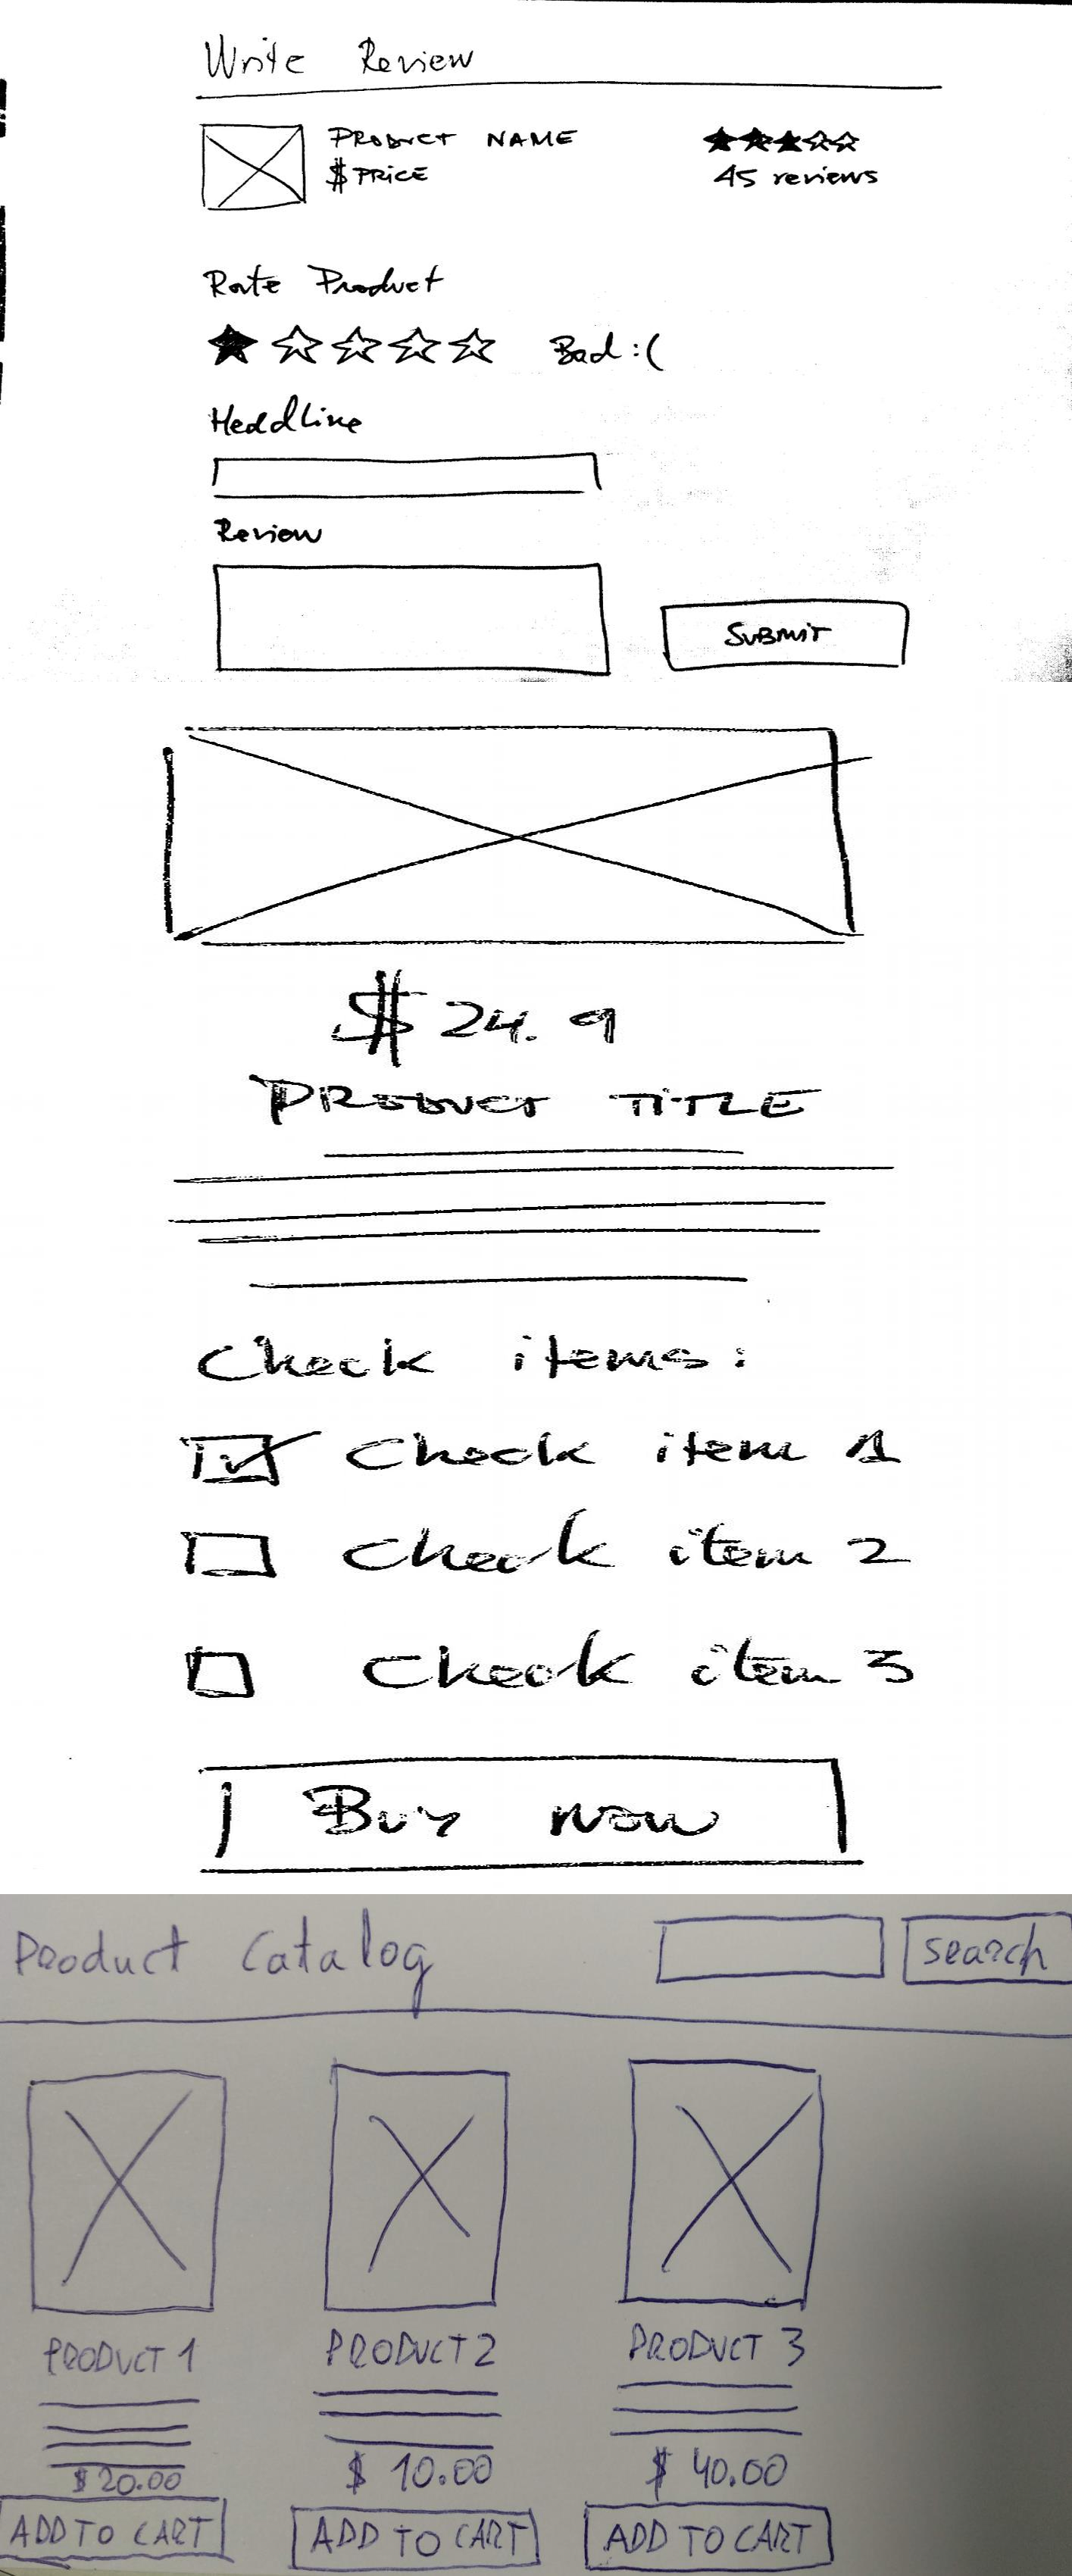 Write Review
PRODUCT NAME
$ PRICE
45 reviews
Rate Product
Bad :(
Headline
Review
SUBMIT
$ 24.9
PRODUCT TITLE
Check items:
Check item 1
Check item 2
Check item 3
Buy now
Product Catalog
search
PRODUCT 1
PRODUCT 2
PRODUCT 3
$ 20.00
$ 10.00
$ 40.00
ADD TO CART
ADD TO CART
ADD TO CART